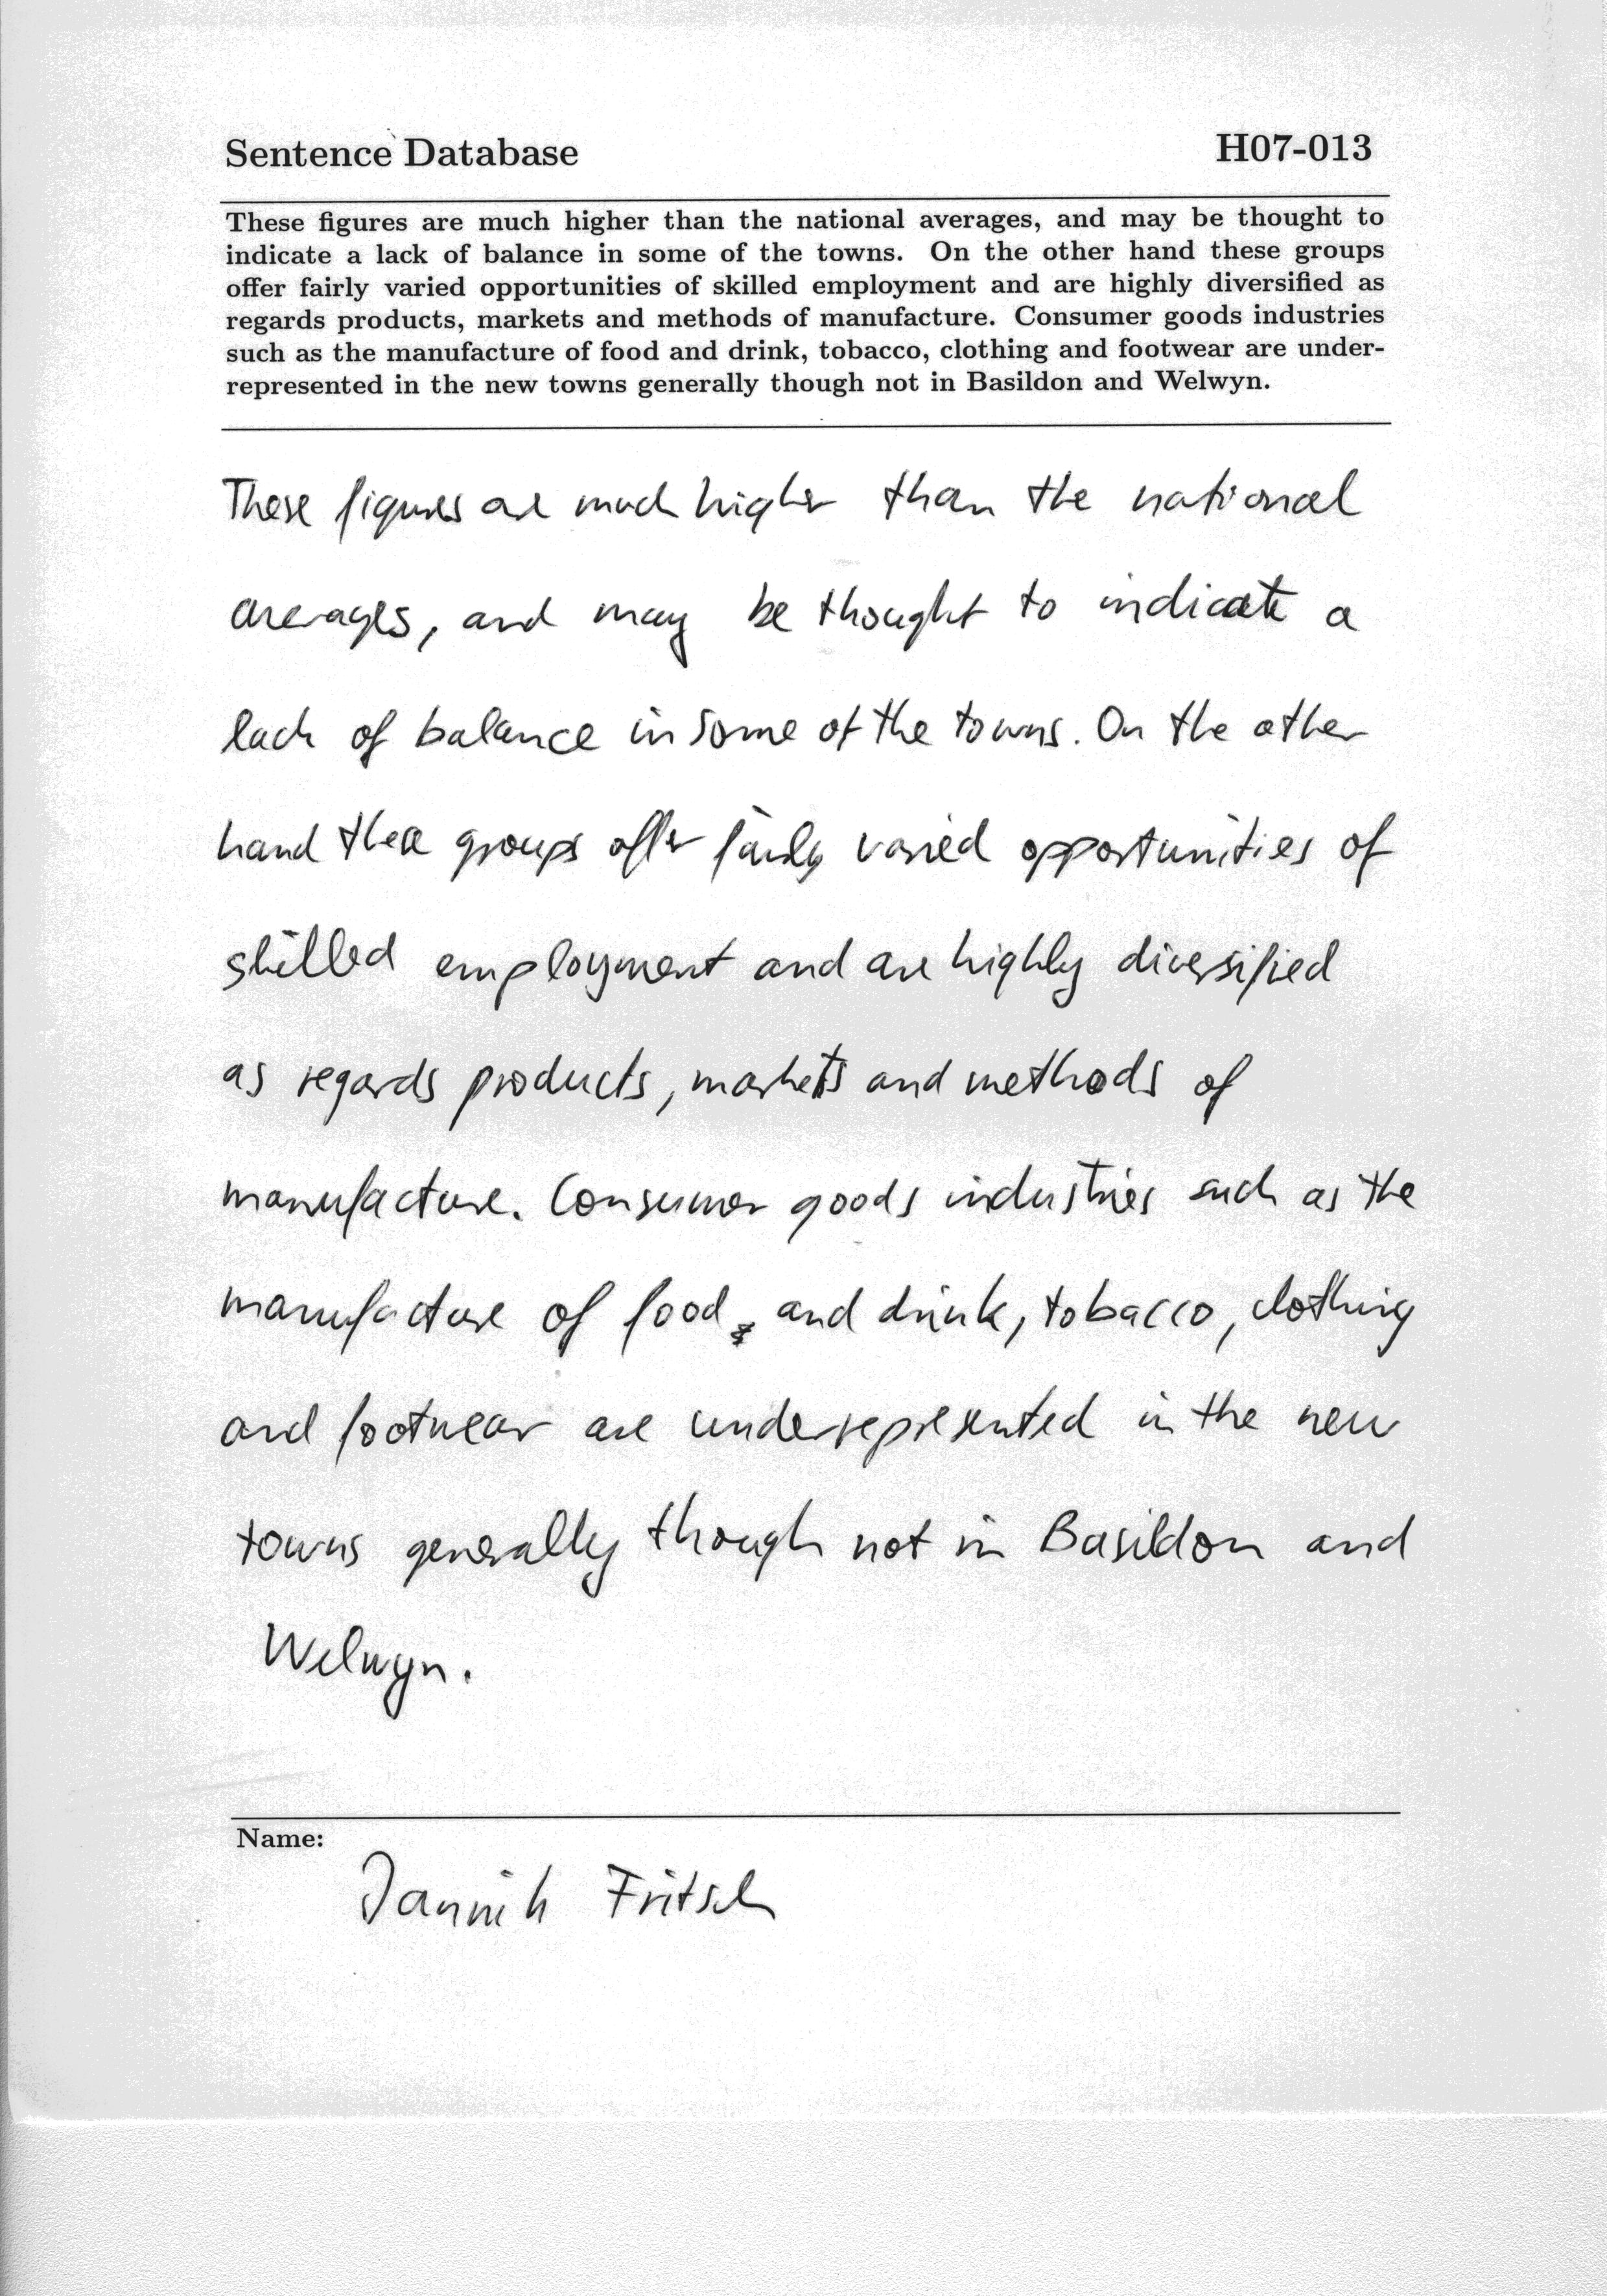 Sentence Database
H07-013
These figures are much higher than the national averages, and may be thought to
indicate a lack of balance in some of the towns. On the other hand these groups
offer fairly varied opportunities of skilled employment and are highly diversified as
regards products, markets and methods of manufacture. Consumer goods industries
such as the manufacture of food and drink, tobacco, clothing and footwear are under-
represented in the new towns generally though not in Basildon and Welwyn.
These figures are much higher than the national
averages, and may be thought to indicate a
lack of balance in some of the towns. On the other
hand these groups offer fairly varied opportunities of
skilled employment and are highly diversified
as regards products, markets and methods of
manufacture. Consumer goods industries such as the
manufacture of food and drink, tobacco, clothing
and footwear are underrepresented in the new
towns generally though not in Basildon and
Welwyn.
Name:
Jannik Fritsch